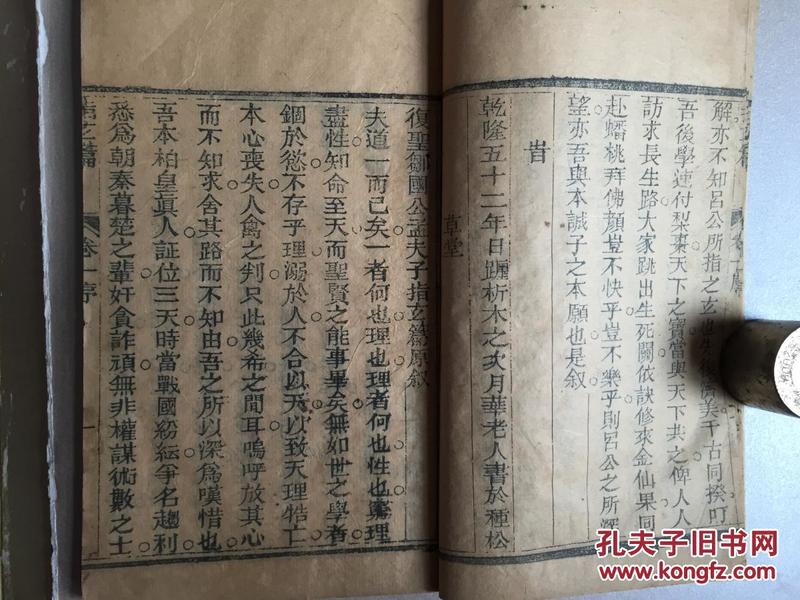 解亦不知呂公所指之玄也先後濟美千古同揆叮
吾後學速付梨棗天下之寶當與天下共之俾人人
訪求長生路大家跳出生死關依訣修來金仙果同
赴蟠桃拜佛顏豈不快乎豈不樂乎則呂公之所深
望亦吾與本誠子之本願也是叙
旹
乾隆五十二年日躔析木之次月華老人書於種松
草堂
復聖鄒國公孟夫子指玄篇原叙
夫道一而已矣一者何也理也理者何也性也窮理
盡性知命至天而聖賢之能事畢矣無如世之學者
錮於慾不存乎理溺於人不合以天以致天理牿亡
本心喪失人禽之判只此幾希之間耳嗚呼放其心
而不知求舍其路而不知由吾之所以深為嘆惜也
吾本柏皇真人証位三天時當戰國紛紜爭名趨利
悉為朝秦暮楚之輩奸貪詐頑無非權謀術數之士
指玄篇
卷一序
一
孔夫子旧书网
www.kongfz.com